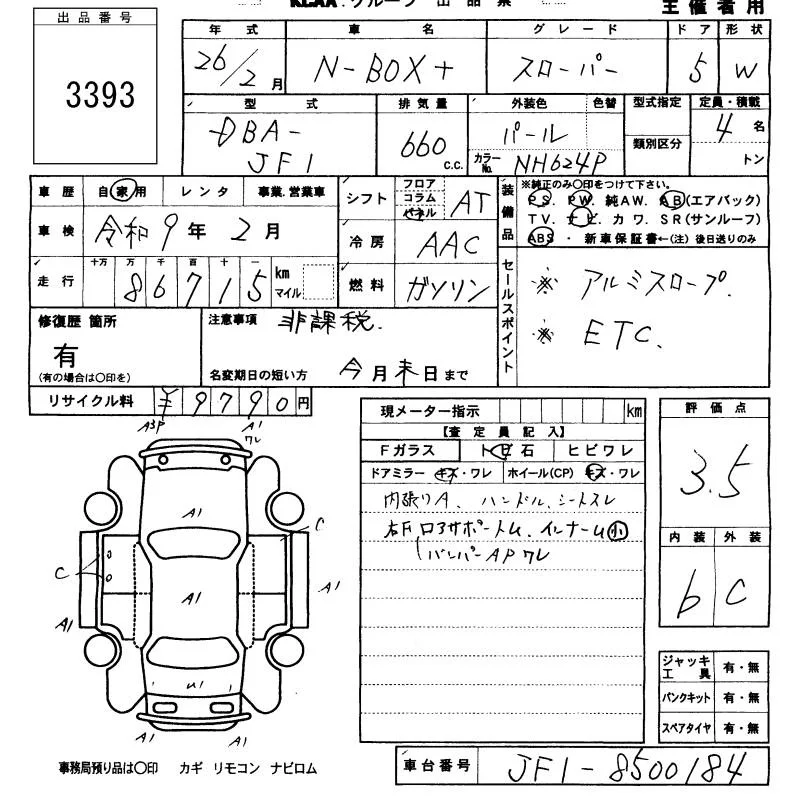 KCAA.グループ 出品票
主催者用
出品番号
3393
年式 車名 グレード ドア 形状
26/2月 N-BOX+ スローパー 5 W
型式 排気量 外装色 色替 型式指定 定員・積載
DBA-JF1 660 c.c. パール カラーNo. NH624P 類別区分 4名 トン
車歴 自家用 レンタ 事業.営業車
車検 令和9年2月
走行 十万 万 千 百 十 一
86715 km マイル
シフト フロア コラム パネル AT
冷房 AAC
燃料 ガソリン
装備品 ※純正のみ〇印をつけて下さい。
PS. PW. 純AW. AB(エアバック)
TV. ナビ. カワ. SR(サンルーフ)
ABS ・ 新車保証書←(注) 後日送りのみ
セールスポイント
※ アルミスロープ.
※ ETC.
修復歴 箇所
有
(有の場合は〇印を)
注意事項 非課税.
名変期日の短い方 今月末日まで
リサイクル料 ¥9790円
現メーター指示 km
【査定員記入】
Fガラス ト ビ 石 ヒビワレ
ドアミラー キズ・ワレ ホイール(CP) キズ・ワレ
内張りA、ハンドル、シートスレ
コアサポートム、インナーム小
バンパーAPワレ
評価点
3.5
内装 外装
b C
ジャッキ工具 有・無
パンクキット 有・無
スペアタイヤ 有・無
A3P A1
ワレ
A1
C
C
A1
A1
A1
U1
A1 A1
事務局預り品は〇印 カギ リモコン ナビロム
車台番号 JF1-8500184